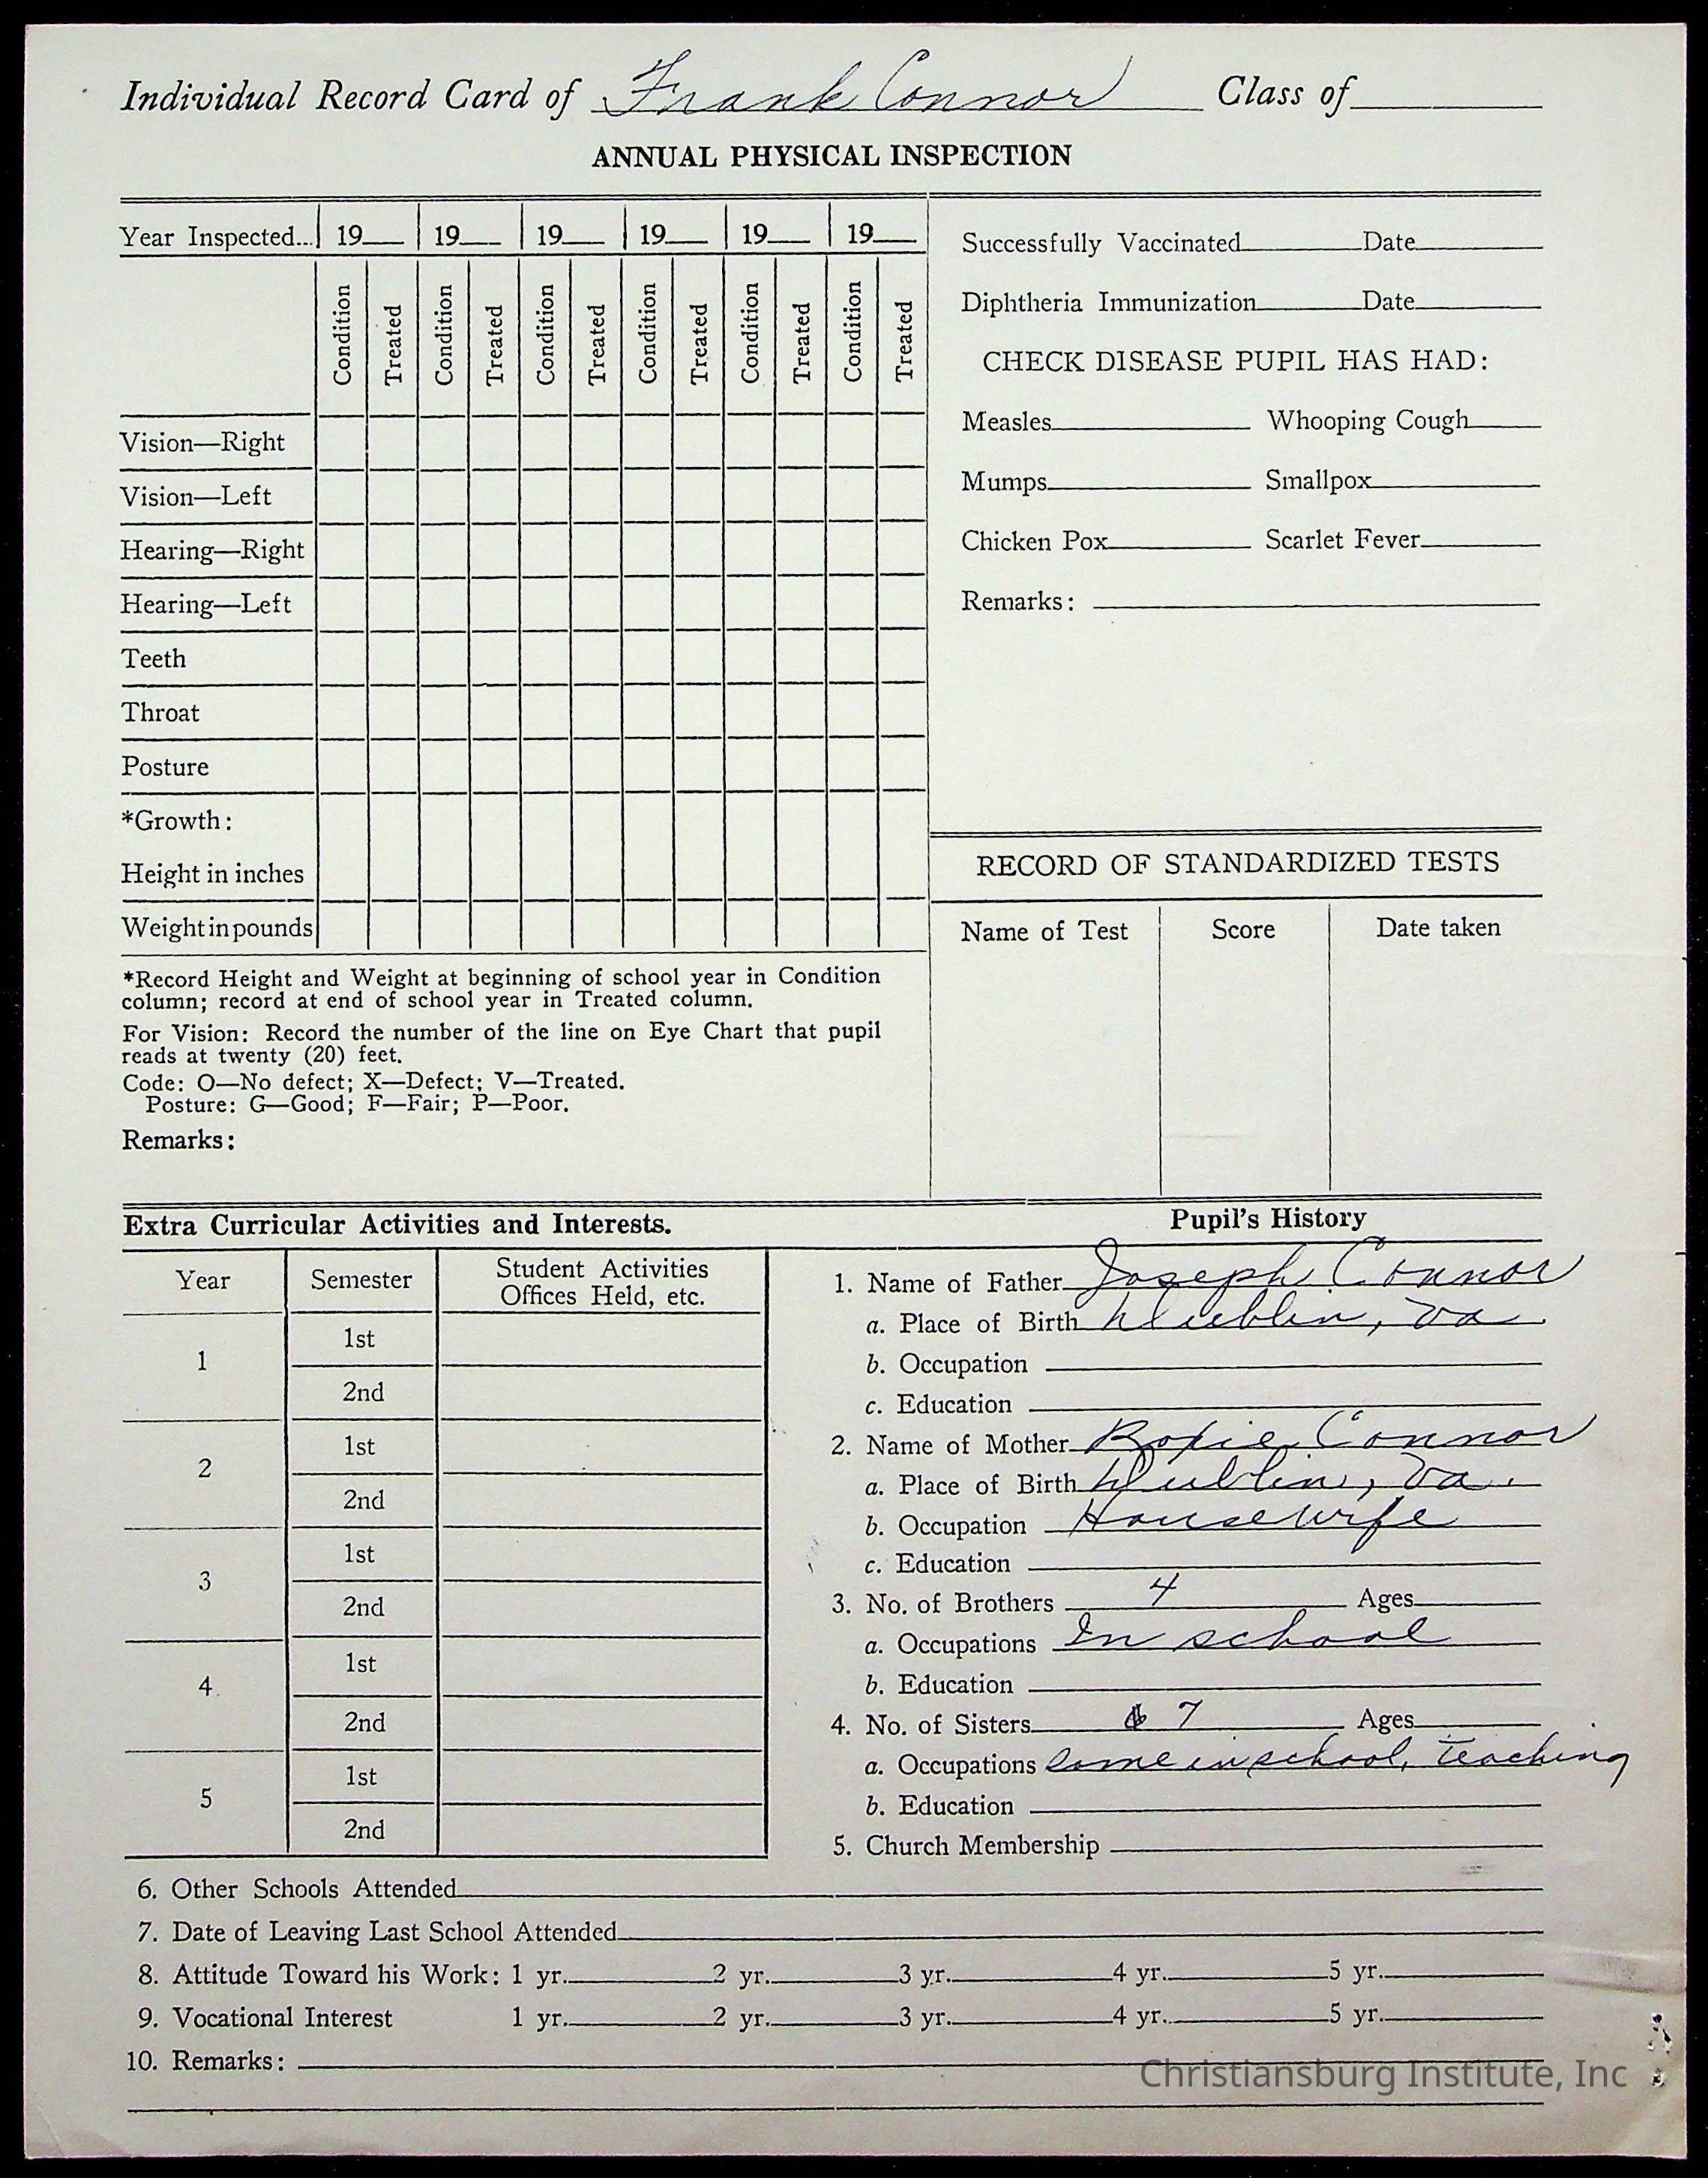 Individual Record Card of Frank Connor Class of
ANNUAL PHYSICAL INSPECTION
Year Inspected... 19 19 19 19 19 19
Condition Treated Condition Treated Condition Treated Condition Treated Condition Treated Condition Treated
Vision—Right
Vision—Left
Hearing—Right
Hearing—Left
Teeth
Throat
Posture
*Growth:
Height in inches
Weight in pounds
*Record Height and Weight at beginning of school year in Condition
column; record at end of school year in Treated column.
For Vision: Record the number of the line on Eye Chart that pupil
reads at twenty (20) feet.
Code: O—No defect; X—Defect; V—Treated.
Posture: G—Good; F—Fair; P—Poor.
Remarks:
Successfully Vaccinated Date
Diphtheria Immunization Date
CHECK DISEASE PUPIL HAS HAD:
Measles Whooping Cough
Mumps Smallpox
Chicken Pox Scarlet Fever
Remarks:
RECORD OF STANDARDIZED TESTS
Name of Test Score Date taken
Extra Curricular Activities and Interests.
Year Semester Student Activities
Offices Held, etc.
1 1st
2nd
2 1st
2nd
3 1st
2nd
4 1st
2nd
5 1st
2nd
Pupil's History
1. Name of Father Joseph Connor
a. Place of Birth Dublin, Va.
b. Occupation
c. Education
2. Name of Mother Connor
a. Place of Birth Dublin, Va.
b. Occupation Housewife
c. Education
3. No. of Brothers 4 Ages
a. Occupations In school
b. Education
4. No. of Sisters 7 Ages
a. Occupations Some in school, teaching
b. Education
5. Church Membership
6. Other Schools Attended
7. Date of Leaving Last School Attended
8. Attitude Toward his Work: 1 yr. 2 yr. 3 yr. 4 yr. 5 yr.
9. Vocational Interest 1 yr. 2 yr. 3 yr. 4 yr. 5 yr.
10. Remarks:
Christiansburg Institute, Inc